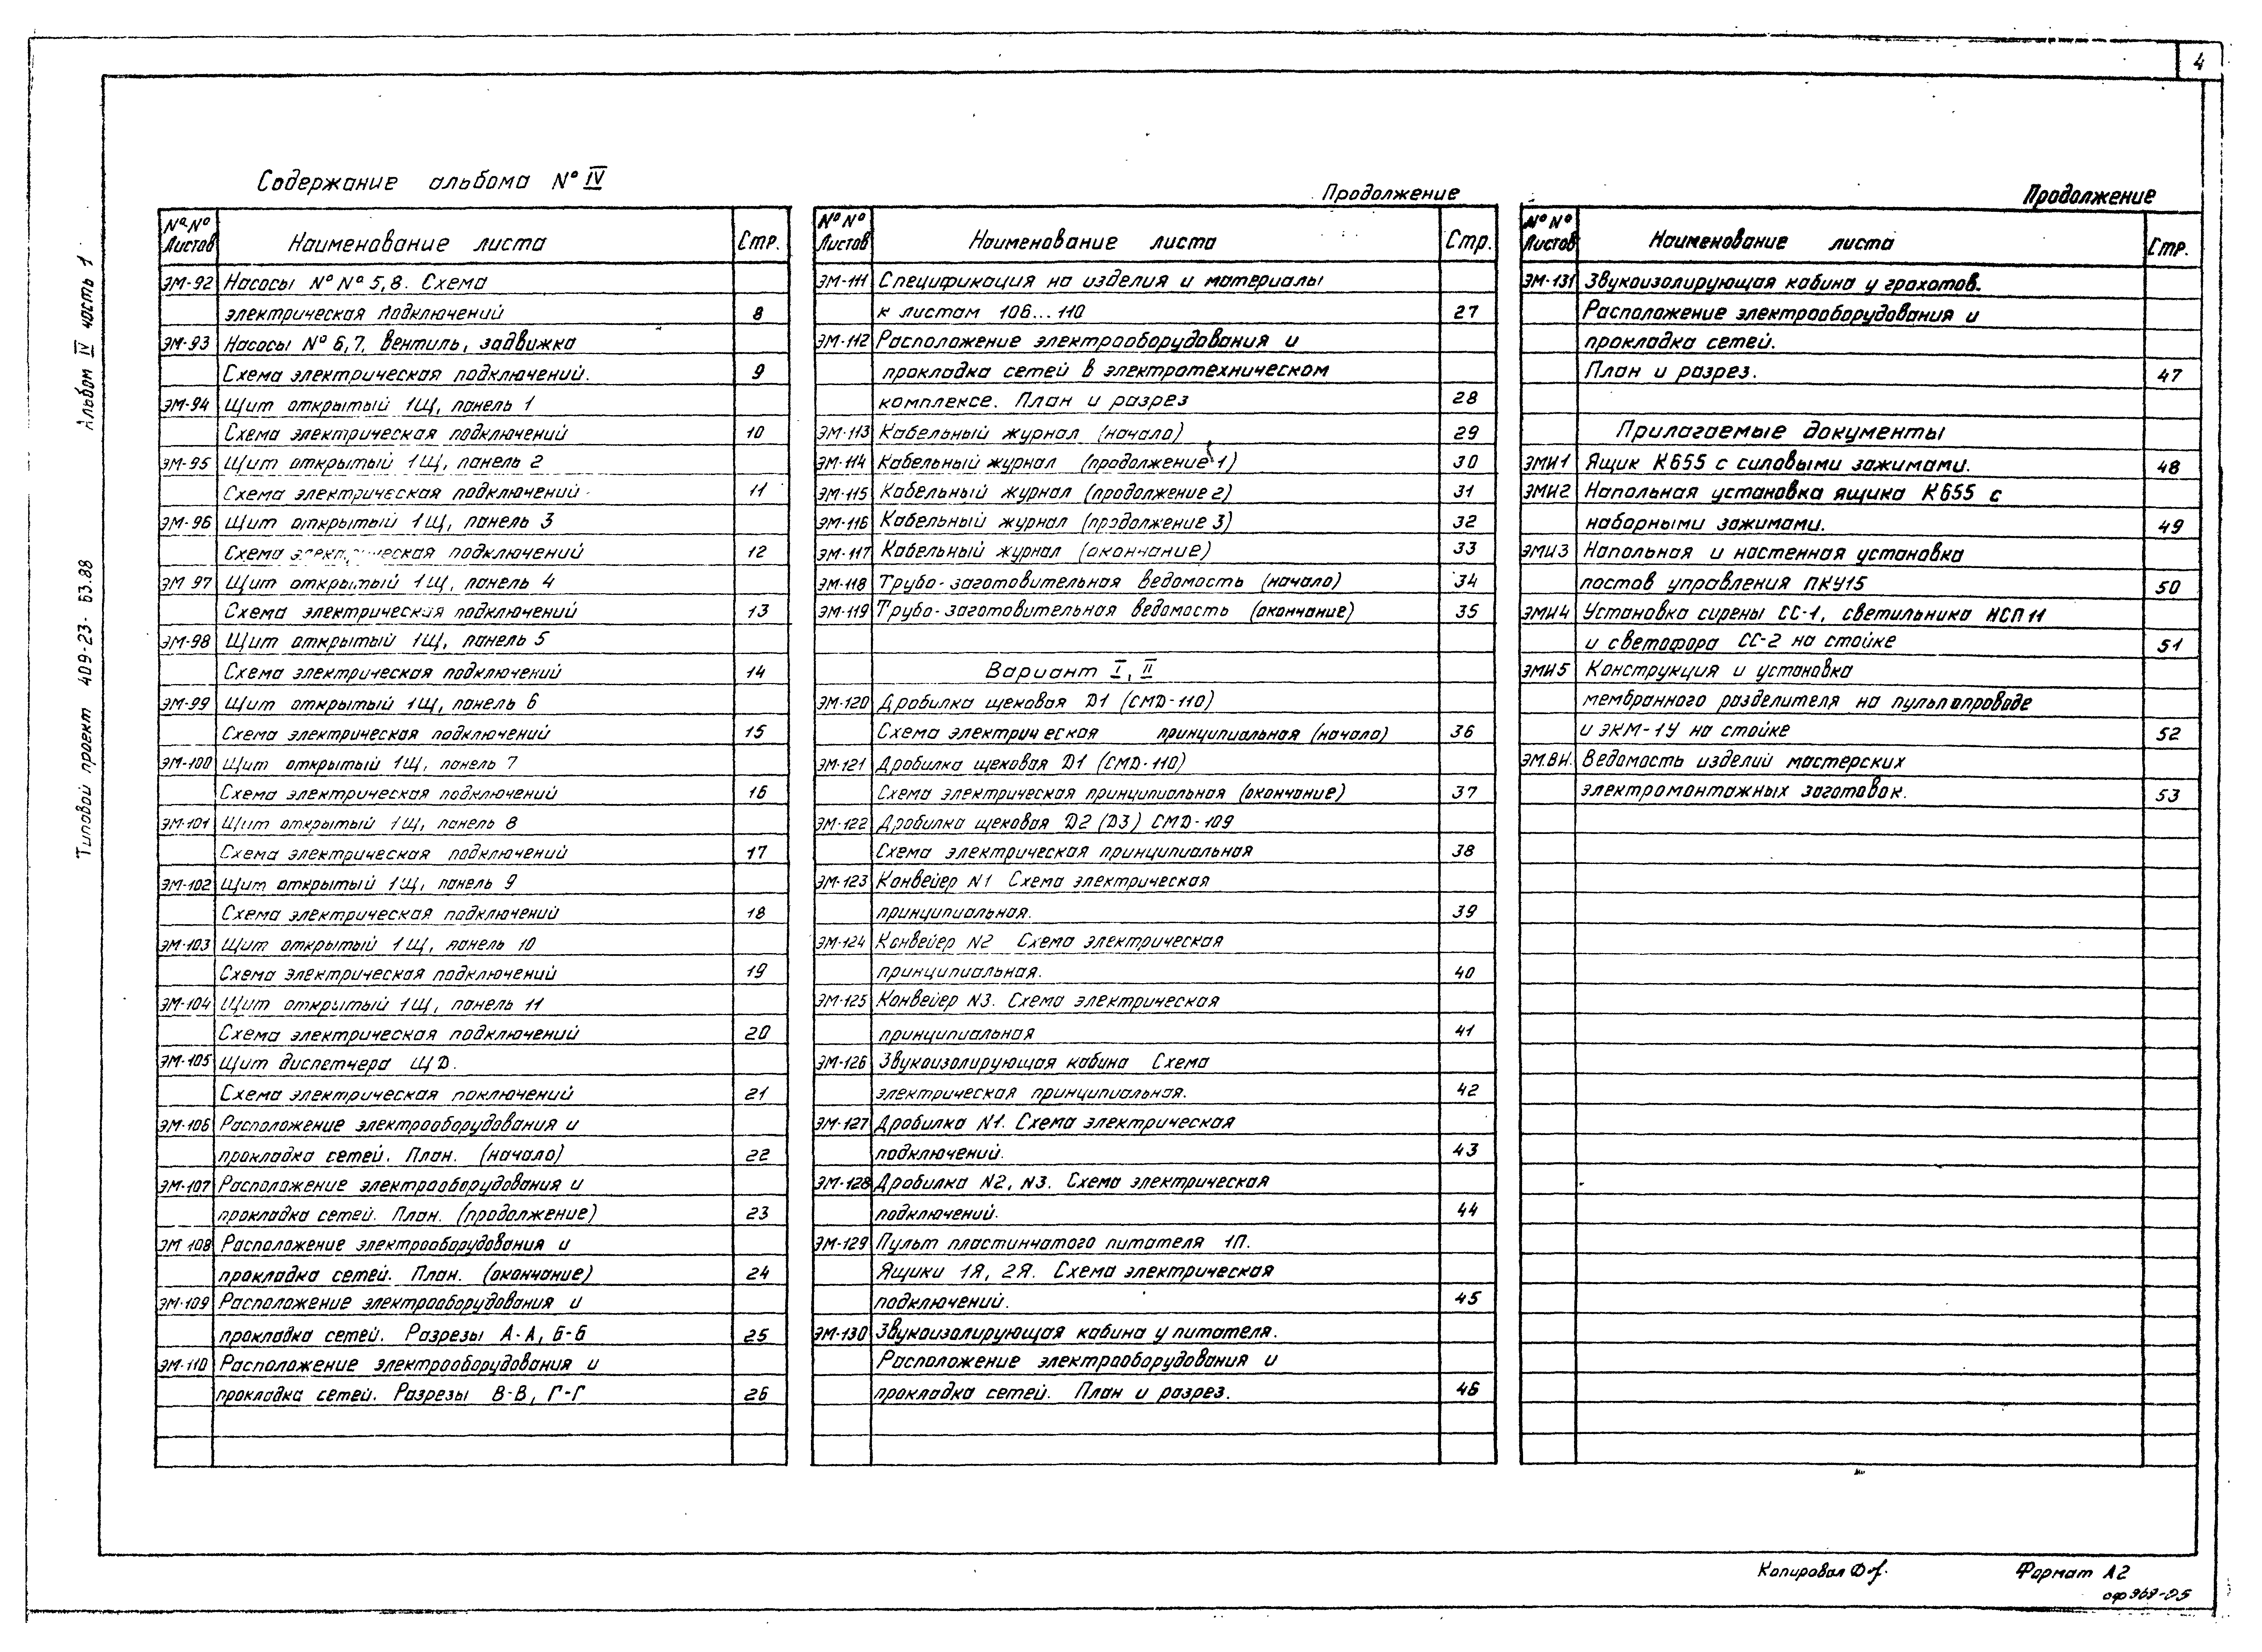 4
Содержание альбома № IV
№ № Листов Наименование листа Стр.
ЭМ-92 Насосы № № 5,8. Схема
электрическая подключений 8
ЭМ-93 Насосы № 6,7, вентиль, задвижка
Схема электрическая подключений. 9
ЭМ-94 Щит открытый 1Щ, панель 1
Схема электрическая подключений 10
ЭМ-95 Щит открытый 1Щ, панель 2
Схема электрическая подключений 11
ЭМ-96 Щит открытый 1Щ, панель 3
Схема электрическая подключений 12
ЭМ 97 Щит открытый 1Щ, панель 4
Схема электрическая подключений 13
ЭМ-98 Щит открытый 1Щ, панель 5
Схема электрическая подключений 14
ЭМ-99 Щит открытый 1Щ, панель 6
Схема электрическая подключений 15
ЭМ-100 Щит открытый 1Щ, панель 7
Схема электрическая подключений 16
ЭМ-101 Щит открытый 1Щ, панель 8
Схема электрическая подключений 17
ЭМ-102 Щит открытый 1Щ, панель 9
Схема электрическая подключений 18
ЭМ-103 Щит открытый 1Щ, панель 10
Схема электрическая подключений 19
ЭМ-104 Щит открытый 1Щ, панель 11
Схема электрическая подключений 20
ЭМ-105 Щит диспетчера ЩД.
Схема электрическая поключений 21
ЭМ-106 Расположение электрооборудования и
прокладка сетей. План. (начало) 22
ЭМ-107 Расположение электрооборудования и
прокладка сетей. План. (продолжение) 23
ЭМ 108 Расположение электрооборудования и
прокладка сетей. План. (окончание) 24
ЭМ-109 Расположение электрооборудования и
прокладка сетей. Разрезы А-А, Б-Б 25
ЭМ-110 Расположение электрооборудования и
прокладка сетей. Разрезы В-В, Г-Г 26
Продолжение
№ № Листов Наименование листа Стр.
ЭМ-111 Спецификация на изделия и материалы
к листам 106...110 27
ЭМ-112 Расположение электрооборудования и
прокладка сетей в электротехническом
комплексе. План и разрез 28
ЭМ-113 Кабельный журнал (начало) 29
ЭМ-114 Кабельный журнал (продолжение 1) 30
ЭМ-115 Кабельный журнал (продолжение 2) 31
ЭМ-116 Кабельный журнал (продолжение 3) 32
ЭМ-117 Кабельный журнал (окончание) 33
ЭМ-118 Трубо-заготовительная ведомость (начало) 34
ЭМ-119 Трубо-заготовительная ведомость (окончание) 35
Вариант I, II
ЭМ-120 Дробилка щековая Д1 (СМД-110)
Схема электрическая принципиальная (начало) 36
ЭМ-121 Дробилка щековая Д1 (СМД-110)
Схема электрическая принципиальная (окончание) 37
ЭМ-122 Дробилка щековая Д2 (Д3) СМД-109
Схема электрическая принципиальная 38
ЭМ-123 Конвейер N1 Схема электрическая
принципиальная. 39
ЭМ-124 Конвейер N2 Схема электрическая
принципиальная. 40
ЭМ-125 Конвейер N3. Схема электрическая
принципиальная 41
ЭМ-126 Звукоизолирующая кабина Схема
электрическая принципиальная. 42
ЭМ-127 Дробилка N1. Схема электрическая
подключений. 43
ЭМ-128 Дробилка N2, N3. Схема электрическая
подключений. 44
ЭМ-129 Пульт пластинчатого питателя 1П.
Ящики 1Я, 2Я. Схема электрическая
подключений. 45
ЭМ-130 Звукоизолирующая кабина у питателя.
Расположение электрооборудования и
прокладка сетей. План и разрез. 46
Продолжение
№ № Листов Наименование листа Стр.
ЭМ-131 Звукоизолирующая кабина у грохотов.
Расположение электрооборудования и
прокладка сетей.
План и разрез. 47
Прилагаемые документы
ЭМИ1 Ящик К655 с силовыми зажимами. 48
ЭМИ2 Напольная установка ящика К655 с
наборными зажимами. 49
ЭМИ3 Напольная и настенная установка
постов управления ПКУ15 50
ЭМИ4 Установка сирены СС-1, светильника НСП 11
и светофора СС-2 на стойке 51
ЭМИ5 Конструкция и установка
мембранного разделителя на пульпопроводе
и ЭКМ-1У на стойке 52
ЭМ.ВИ. Ведомость изделий мастерских
электромонтажных заготовок. 53
Типовой проект 409-23-53.88 Альбом IV часть 1
Копировал
Формат А2